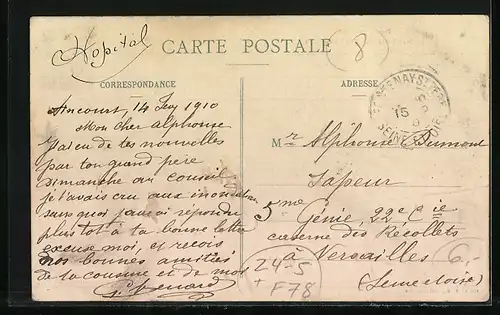 Hopital
CARTE POSTALE
8
CORRESPONDANCE
ADRESSE
14 1910
Mon Cher Alphonse
J'ai eu de tes nouvelles
par ton grand père
dimanche au conseil
je t'avais cru aux inondations
sans quoi j'aurai répondu
plus tôt à ta bonne lettre
excuse moi, et recois
nos bonnes amitiés
de ta cousine et de moi
Mr Alphonse Dumont
Sapeur
5me Génie, 22e Cie
caserne des Récollets
à Versailles
(Seine et oise)
15
SEINE-ET-OISE
24-5
+ F78
6.-